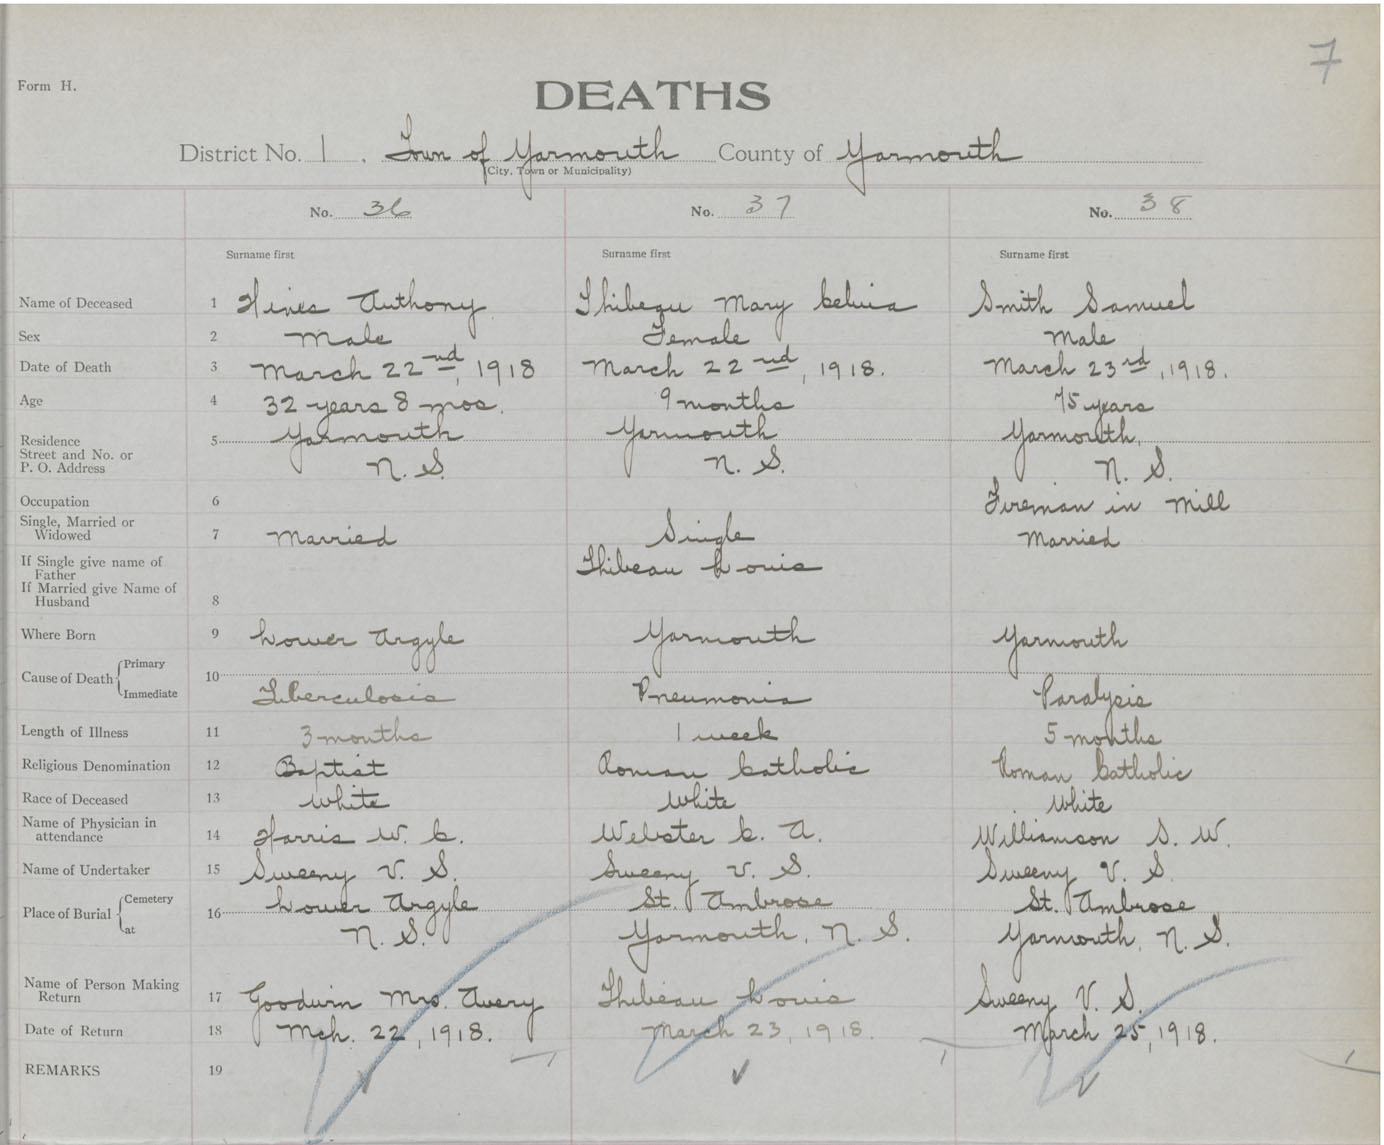 7
Form H.
DEATHS
District No. 1. Town of Yarmouth County of Yarmouth
(City, Town or Municipality)
No. 36 No. 37 No. 38
Surname first Surname first Surname first
Name of Deceased 1 Hines Anthony Thibeau Mary Celvia Smith Samuel
Sex 2 Male Female Male
Date of Death 3 March 22nd, 1918 March 22nd, 1918. March 23rd, 1918.
Age 4 32 years 8 mos. 9 months 75 years
Residence 5 Yarmouth Yarmouth Yarmouth,
Street and No. or
P. O. Address N. S. N. S. N. S.
Occupation 6 Fireman in Mill
Single, Married or
Widowed 7 Married Single Married
If Single give name of
Father Thibeau Louis
If Married give Name of
Husband 8
Where Born 9 Lower Argyle Yarmouth Yarmouth
Cause of Death Primary 10
Immediate Tuberculosis Pneumonia Paralysis
Length of Illness 11 3 months 1 week 5 months
Religious Denomination 12 Baptist Roman Catholic Roman Catholic
Race of Deceased 13 White White White
Name of Physician in
attendance 14 Harris W. C. Webster C. A. Williamson S. W.
Name of Undertaker 15 Sweeny V. S. Sweeny V. S. Sweeny V. S.
Place of Burial Cemetery 16 Lower Argyle St. Ambrose St. Ambrose
at N. S. Yarmouth, N. S. Yarmouth, N. S.
Name of Person Making
Return 17 Goodwin Mrs. Avery Thibeau Louis Sweeny V. S.
Date of Return 18 Mch. 22, 1918. March 23, 1918. March 25, 1918.
REMARKS 19